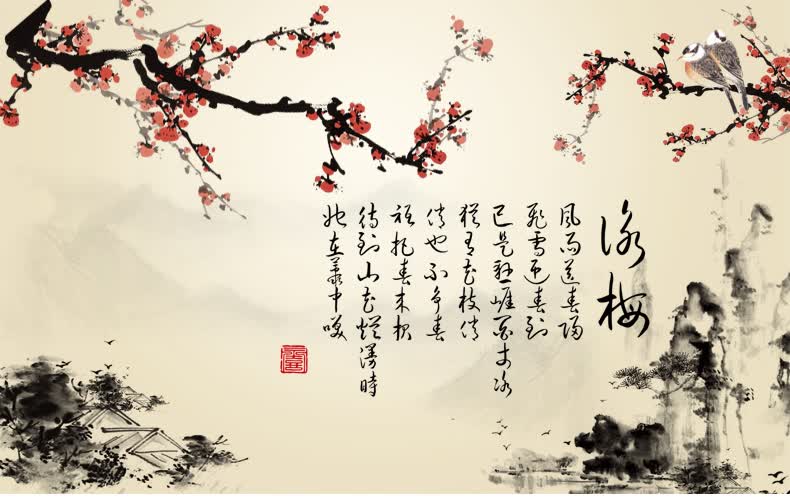 咏梅
风雨送春归
飛雪迎春到
已是悬崖百丈冰
犹有花枝俏
俏也不争春
祇把春来报
待到山花烂漫時
她在丛中笑